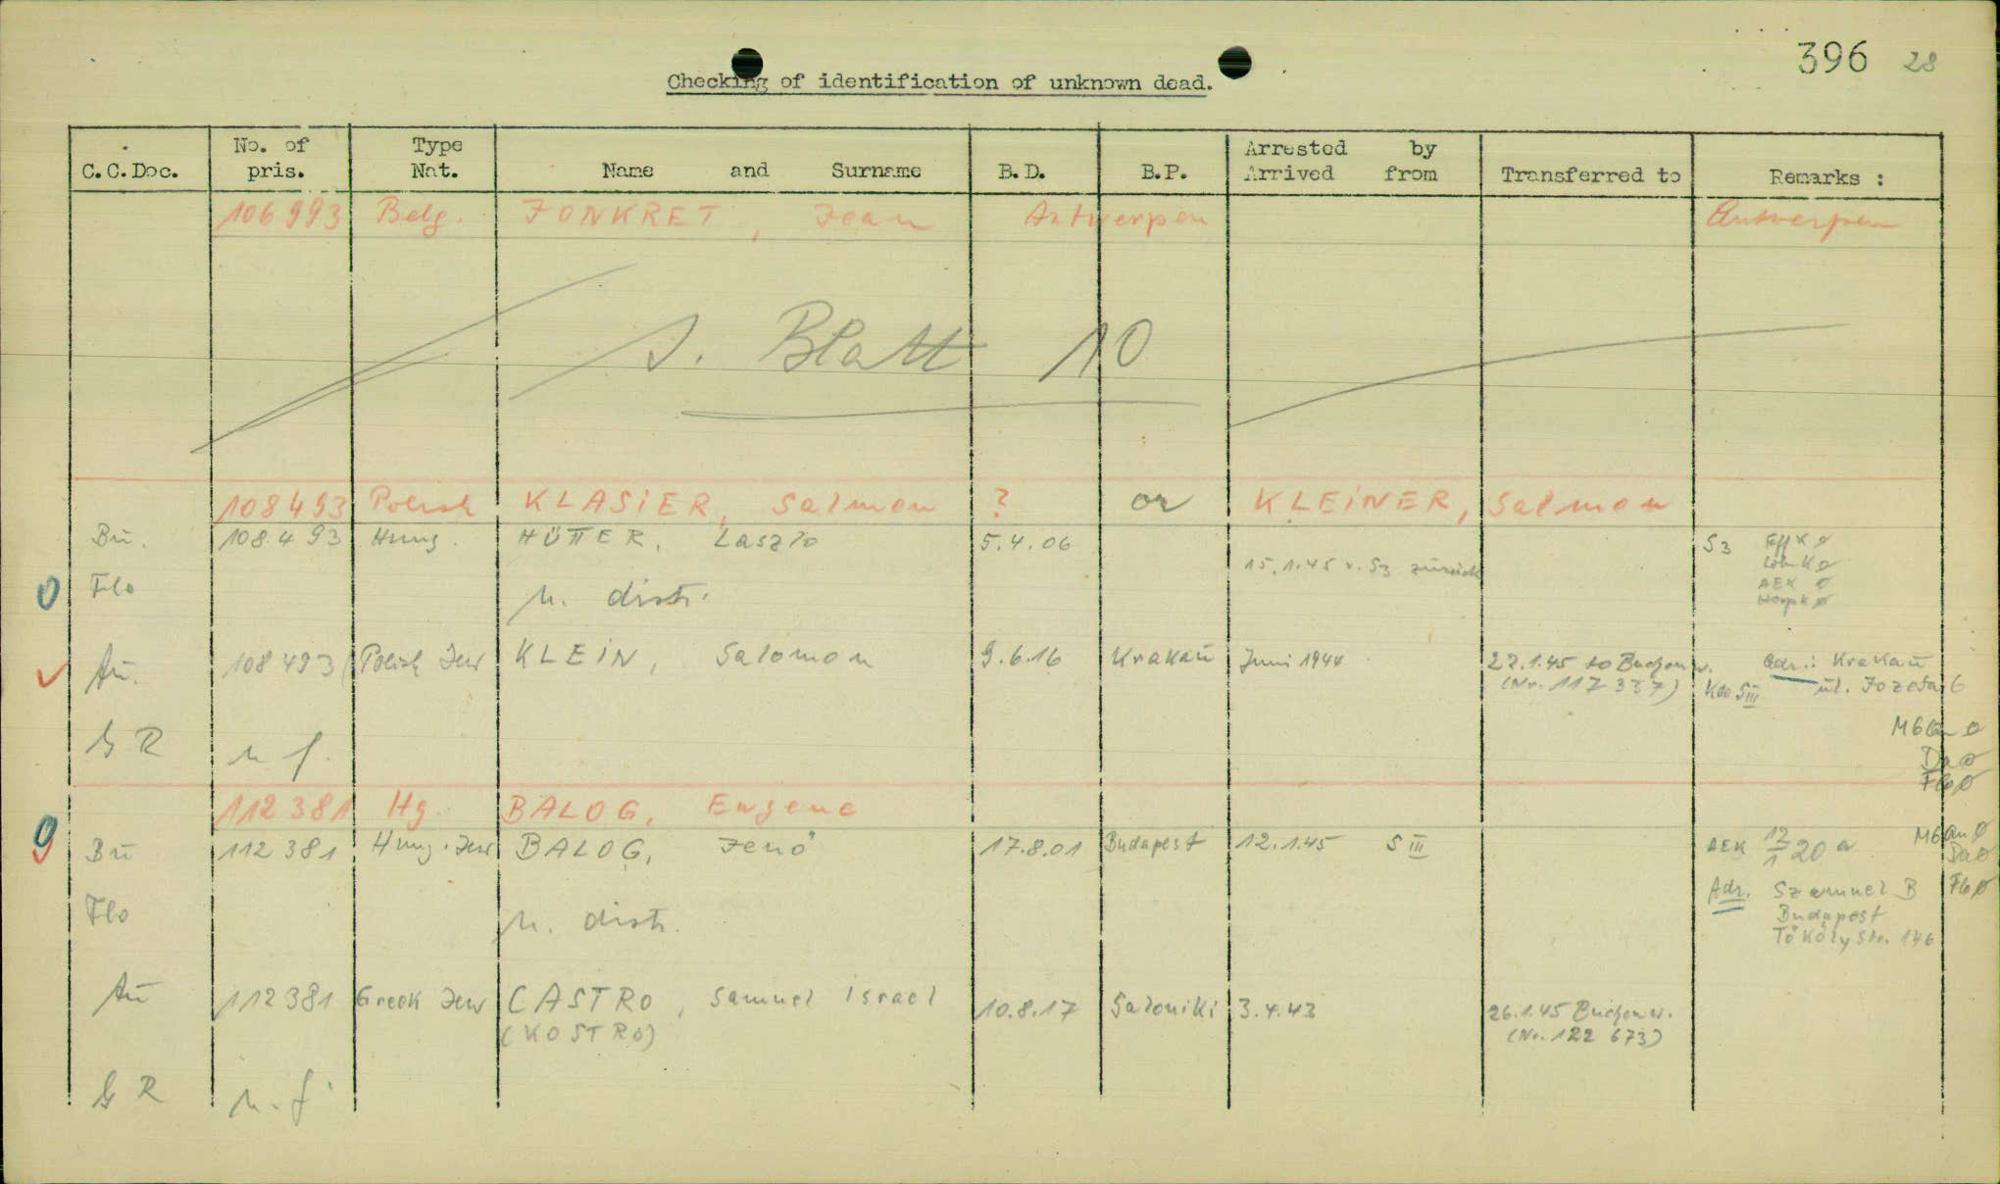 396 28
Checking of identification of unknown dead.
C.C.Doc. No. of pris. Type Nat. Name and Surname B.D. B.P. Arrested by Arrived from Transferred to Remarks :
106 993 Belg. JONKRET, Jean Antwerpen Antwerpen
s. Blatt 10
108493 Polish KLASIER, Salmon ? or KLEINER, Salmon
Bu. 108493 Hung. HÜTTER, Laszlo 5.4.06 15.1.45 v. S3 zurück S3 Eff K ø
AEK ø
Flo n. distr.
Au. 108493 Polish Jew KLEIN, Salomon 9.6.16 Krakau Juni 1944 22.1.45 to Buchenw. Adr.: Krakau
(Nr. 117337) Kdo SIII ul. Jozefa 6
G R n f.
Da ø
Flo ø
112381 Hg. BALOG, Eugene
Bu 112381 Hung. Jew BALOG, Jenö 17.8.01 Budapest 12.1.45 S III AEK 12/1 20 a
Da ø
Flo n. distr. Adr. Szamuel B Flo ø
Budapest
Tököly Str. 146
Au 112381 Greek Jew CASTRO, Samuel Israel 10.8.17 Saloniki 3.4.43 26.1.45 Buchenw.
(KOSTRO) (Nr. 122 673)
G R n. f.